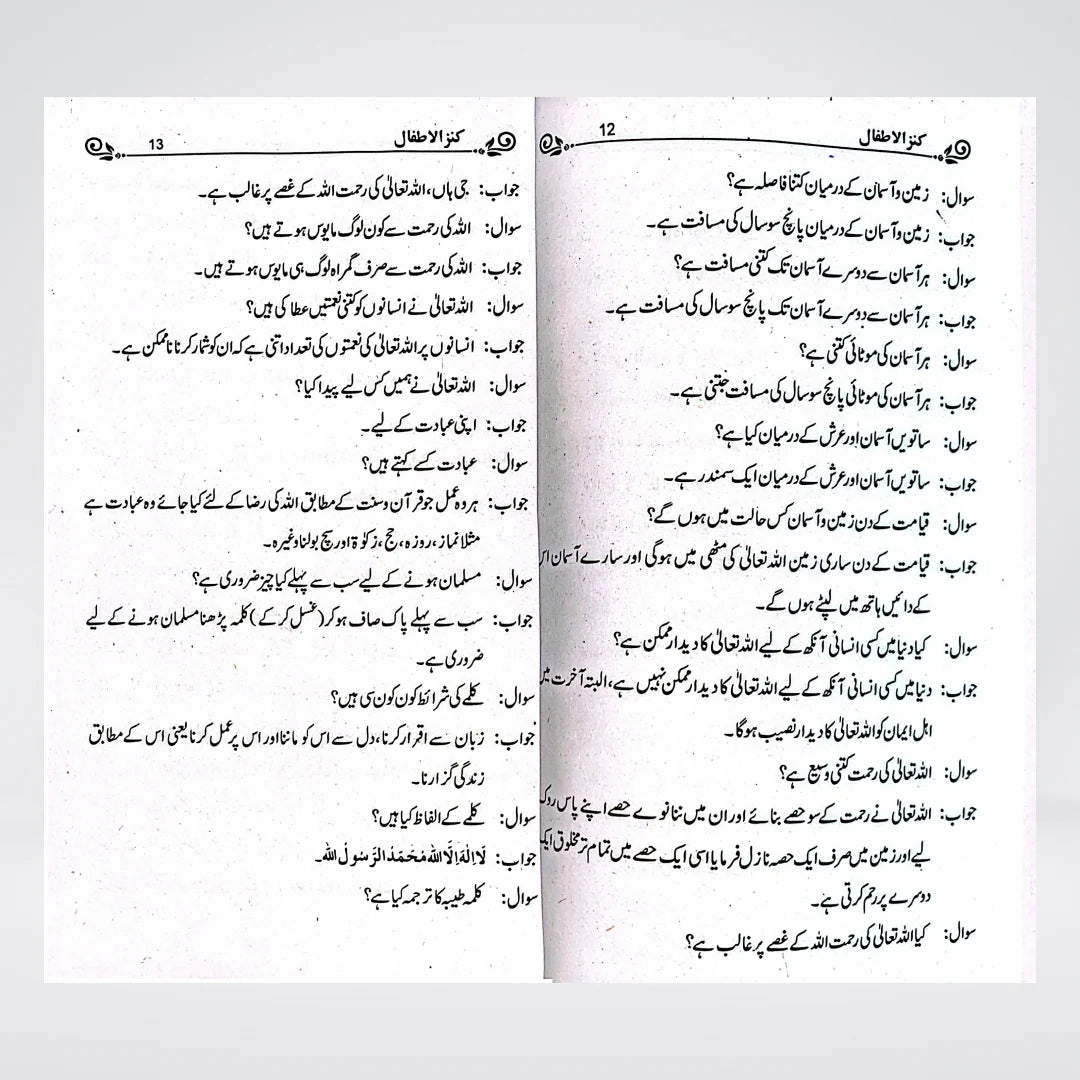 کنز الاطفال 12
سوال: زمین و آسمان کے درمیان کتنا فاصلہ ہے؟
جواب: زمین و آسمان کے درمیان پانچ سو سال کی مسافت ہے۔
سوال: ہر آسمان سے دوسرے آسمان تک کتنی مسافت ہے؟
جواب: ہر آسمان سے دوسرے آسمان تک پانچ سو سال کی مسافت ہے۔
سوال: ہر آسمان کی موٹائی کتنی ہے؟
جواب: ہر آسمان کی موٹائی پانچ سو سال کی مسافت جتنی ہے۔
سوال: ساتویں آسمان اور عرش کے درمیان کیا ہے؟
جواب: ساتویں آسمان اور عرش کے درمیان ایک سمندر ہے۔
سوال: قیامت کے دن زمین و آسمان کس حالت میں ہوں گے؟
جواب: قیامت کے دن ساری زمین اللہ تعالیٰ کی مٹھی میں ہوگی اور سارے آسمان اس
کے دائیں ہاتھ میں لپٹے ہوں گے۔
سوال: کیا دنیا میں کسی انسانی آنکھ کے لیے اللہ تعالیٰ کا دیدار ممکن ہے؟
جواب: دنیا میں کسی انسانی آنکھ کے لیے اللہ تعالیٰ کا دیدار ممکن نہیں ہے، البتہ آخرت میں
اہل ایمان کو اللہ تعالیٰ کا دیدار نصیب ہوگا۔
سوال: اللہ تعالیٰ کی رحمت کتنی وسیع ہے؟
جواب: اللہ تعالیٰ نے رحمت کے سو حصے بنائے اور ان میں ننانوے حصے اپنے پاس روک
لیے اور زمین میں صرف ایک حصہ نازل فرمایا اسی ایک حصے میں تمام تر مخلوق ایک
دوسرے پر رحم کرتی ہے۔
سوال: کیا اللہ تعالیٰ کی رحمت اللہ کے غصے پر غالب ہے؟
کنز الاطفال 13
جواب: جی ہاں، اللہ تعالیٰ کی رحمت اللہ کے غصے پر غالب ہے۔
سوال: اللہ کی رحمت سے کون لوگ مایوس ہوتے ہیں؟
جواب: اللہ کی رحمت سے صرف گمراہ لوگ ہی مایوس ہوتے ہیں۔
سوال: اللہ تعالیٰ نے انسانوں کو کتنی نعمتیں عطا کی ہیں؟
جواب: انسانوں پر اللہ تعالیٰ کی نعمتوں کی تعداد اتنی ہے کہ ان کو شمار کرنا ناممکن ہے۔
سوال: اللہ تعالیٰ نے ہمیں کس لیے پیدا کیا؟
جواب: اپنی عبادت کے لیے۔
سوال: عبادت کسے کہتے ہیں؟
جواب: ہر وہ عمل جو قرآن و سنت کے مطابق اللہ کی رضا کے لئے کیا جائے وہ عبادت ہے
مثلا نماز، روزہ، حج، زکوٰۃ اور سچ بولنا وغیرہ۔
سوال: مسلمان ہونے کے لیے سب سے پہلے کیا چیز ضروری ہے؟
جواب: سب سے پہلے پاک صاف ہو کر (غسل کر کے) کلمہ پڑھنا مسلمان ہونے کے لیے
ضروری ہے۔
سوال: کلمے کی شرائط کون کون سی ہیں؟
جواب: زبان سے اقرار کرنا، دل سے اس کو ماننا اور اس پر عمل کرنا یعنی اس کے مطابق
زندگی گزارنا۔
سوال: کلمے کے الفاظ کیا ہیں؟
جواب: لَا اِلٰهَ اِلَّا اللهُ مُحَمَّدٌ الرَّسُولُ الله۔
سوال: کلمہ طیبہ کا ترجمہ کیا ہے؟